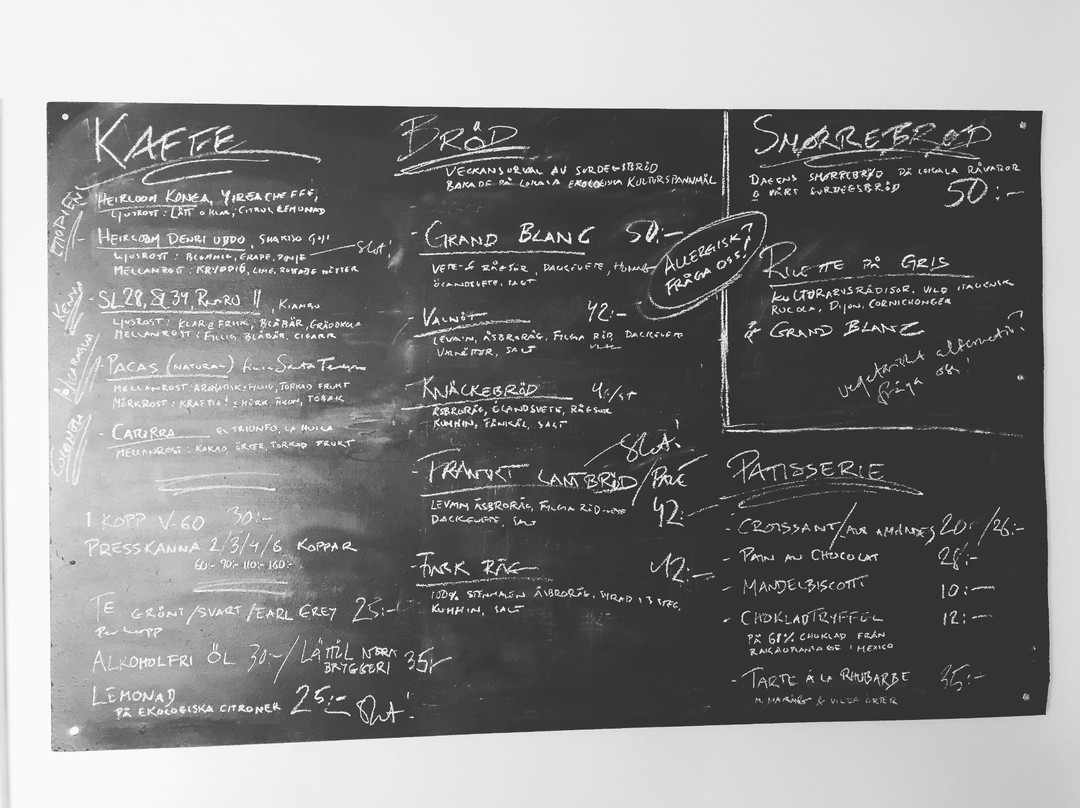 KAFFE
ETIOPIEN
HEIRLOOM KONGA, YIRGACHEFFE,
LJUSROST: LÄTT & KLAR, CITRUS, LEMONAD
- HEIRLOOM DENBI UDDO, SHAKISO GUJI
LJUSROST: BLOMMIG, GRAPE,
MELLANROST: KRYDDIG, LIME, ROSTADE NÖTTER
SLUT!
KENYA
- SL28, SL34, RUIRU 11, KIAMBU
LJUSROST: KLAR & FRISK, BLÅBÄR, GRÄDDKOLA
MELLANROST: FYLLIG, BLÅBÄR, CIGARR
NICARAGUA
- PACAS (NATURAL) finca Santa Teresa
MELLANROST: AROMATISK & FYLLIG, TORKAD FRUKT
MÖRKROST: KRAFTIG & MÖRK, FIKON, TOBAK
COLOMBIA
- CATURRA EL TRIUNFO, LA HUILA
MELLANROST: KAKAO, ÖRTER, TORKAD FRUKT
1 KOPP V-60 30:-
PRESSKANNA 2/3/4/6 KOPPAR
60:- 90:- 110:- 160:-
TE GRÖNT/SVART/EARL GREY 25:-
Per kopp
ALKOHOLFRI ÖL 30:-/LÄTTÖL NORA BRYGGERI 35:-
LEMONAD
PÅ EKOLOGISKA CITRONER 25:- Slut!
BRÖD
VECKANS URVAL AV SURDEGSBRÖD
BAKADE PÅ LOKALA EKOLOGISKA KULTURSPANNMÅL
- GRAND BLANC 50:-
VETE- & RÅGSUR, DALAVETE, HONUNG
ÖLANDSVETE, SALT
- VALNÖT 42:-
LEVAIN, ÅSBRORÅG, FYLGIA RÖD, DALAVETE
VALNÖTTER, SALT
KNÄCKEBRÖD 4:-/ST
ÅSBRORÅG, ÖLANDSVETE, RÅGSUR
KUMMIN, FÄNKÅL, SALT
SLUT!
- FRANSKT LANTBRÖD/PAVÉ 42:-
LEVAIN ÅSBRORÅG, FYLGIA RÖD-VETE
DALAVETE, SALT
- FINSK RÅG 42:-
100% STENMALEN ÅSBRORÅG, SYRAD I 3 STEG,
KUMMIN, SALT
ALLERGISK?
FRÅGA OSS!
SMØRREBRØD
DAGENS SMØRREBRØD PÅ LOKALA RÅVAROR
& VÅRT SURDEGSBRÖD 50:-
RILETTE PÅ GRIS
KULTURARVSRÄDISOR, VILD ITALIENSK
RUCOLA, DIJON, CORNICHONGER
GRAND BLANC
vegetariskt alternativ?
fråga oss!
PATISSERIE
- CROISSANT/AUX AMANDES 20:-/26:-
- PAIN AU CHOCOLAT 28:-
- MANDELBISCOTTI 10:-
- CHOKLADTRYFFEL 12:-
PÅ 68% CHOKLAD FRÅN
KAKAOPLANTAGE I MEXICO
- TARTE À LA RHUBARBE 35:-
M. MARÄNG & VILDA ÖRTER